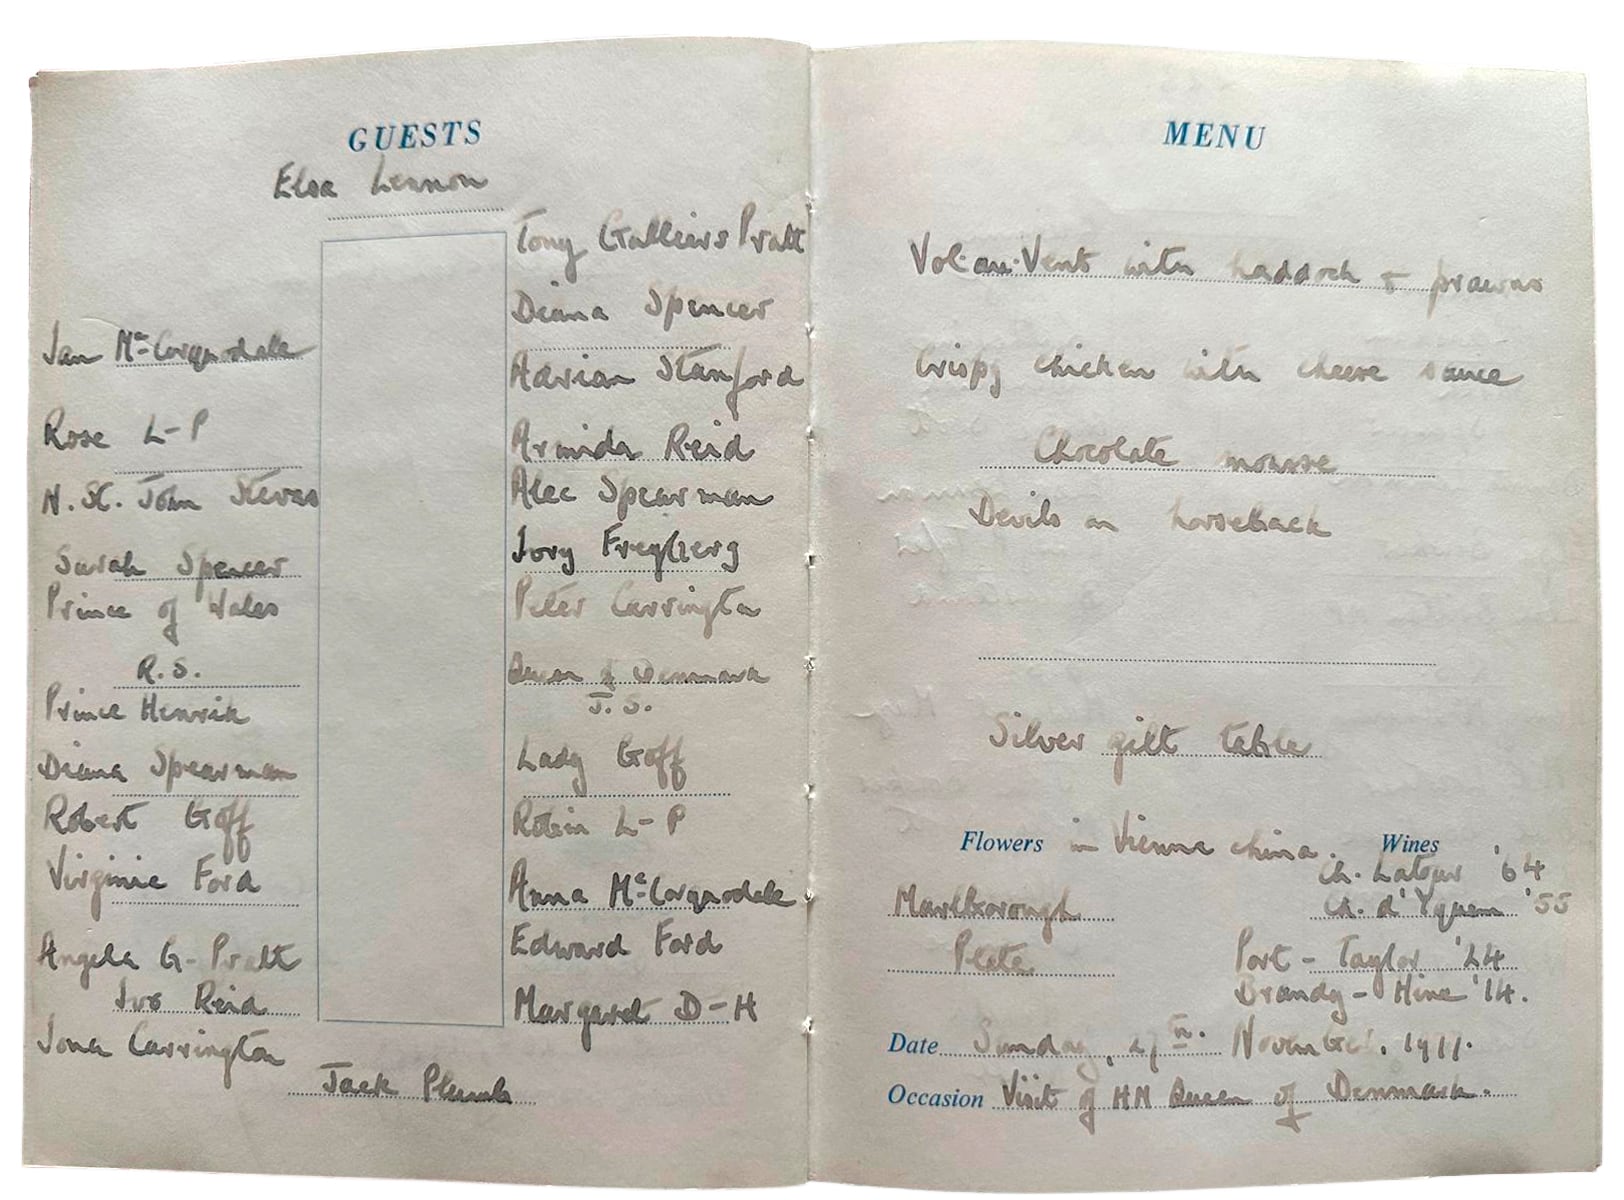 GUESTS
Elsa Lennon
Jan McCorquodale
Rose L-P
N. St. John Stevas
Sarah Spencer
Prince of Wales
R.S.
Prince Henrik
Diana Spearman
Robert Goff
Virginia Ford
Angela G-Pratt
Ivo Reid
Iona Carrington
Jack Plumb
Tony Galliers Pratt
Diana Spencer
Adrian Stanford
Armida Reid
Alec Spearman
Peter Carrington
Queen of Denmark
J.S.
Lady Goff
Robin L-P
Anna McCorquodale
Edward Ford
Margaret D-H
MENU
Vol-au-Vent with haddock & prawns
Crispy chicken with cheese sauce
Chocolate mousse
Devils on horseback
Silver gilt table
Flowers in Vienna china.
Marlborough
Plate
Wines
Ch. Latour '64
Ch. d'Yquem '55
Port - Taylor '24
Brandy - Hine '14.
Date Sunday, 27th. November. 1977.
Occasion Visit of HM Queen of Denmark.